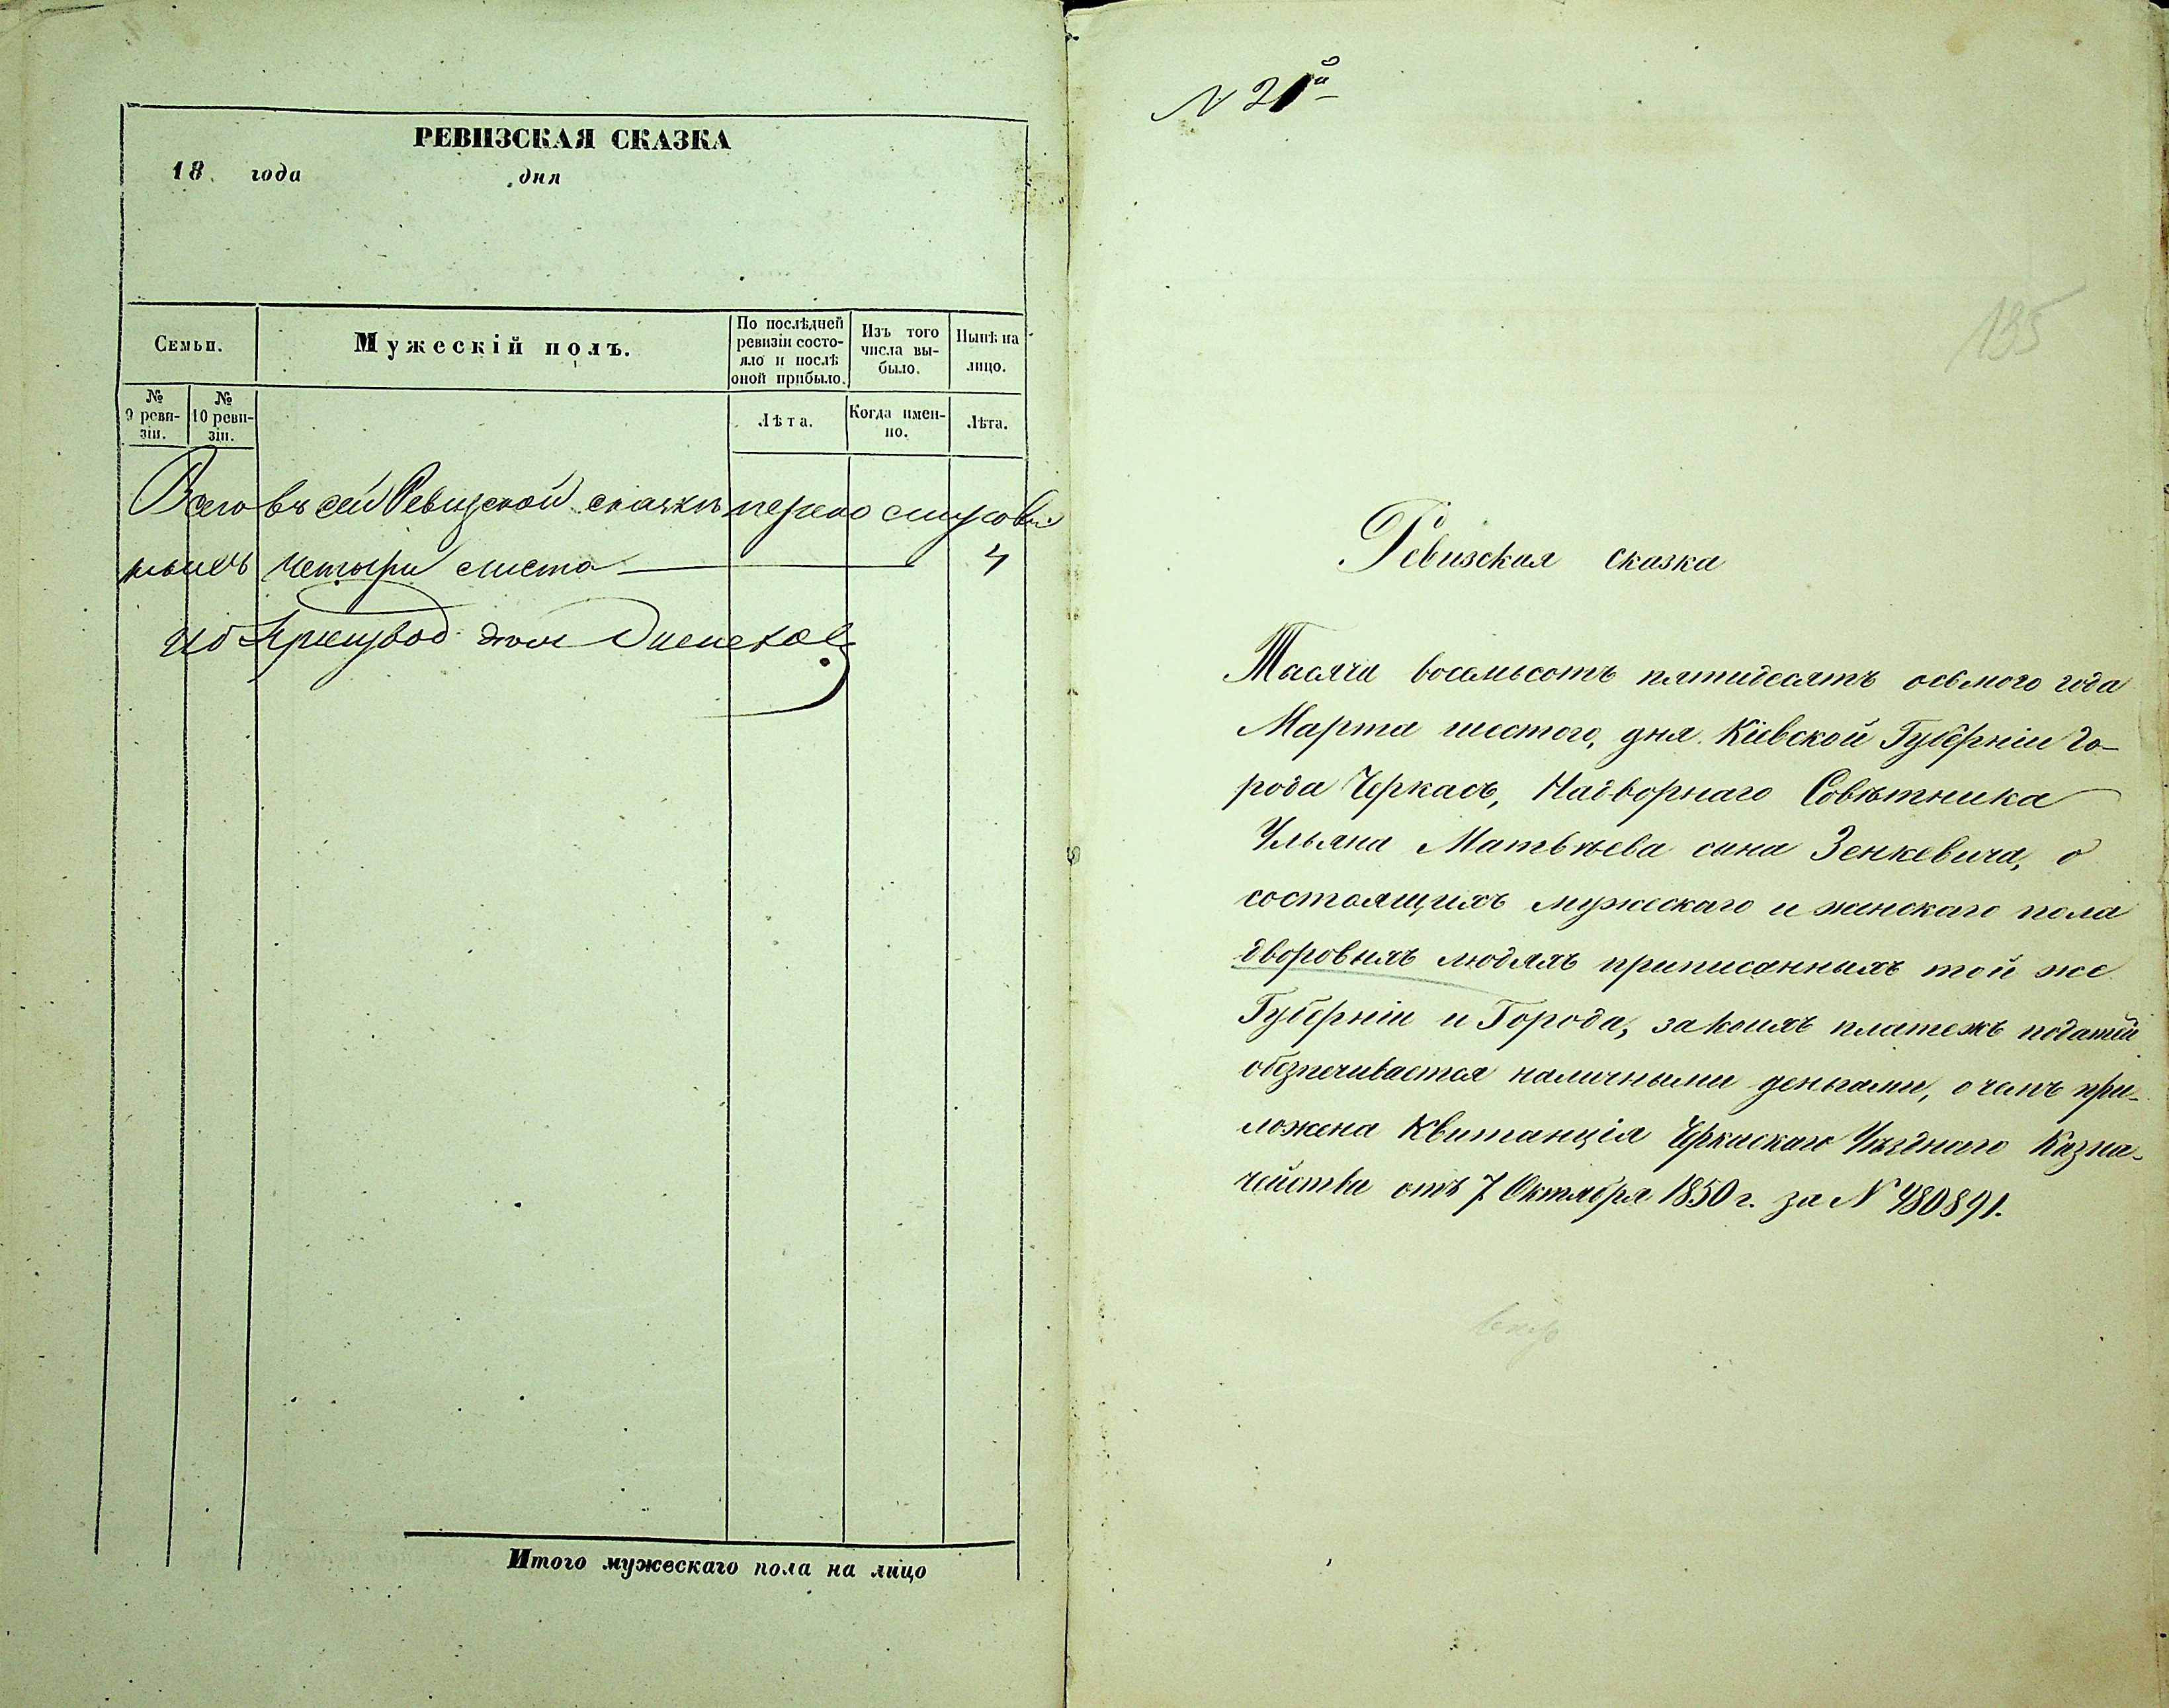 РЕВИЗСКАЯ СКАЗКА
18 года дня
Семьи.
Мужескій полъ.
По послѣдней ревизіи состо-
яло и послѣ оной прибыло.
Изъ того числа вы-
было.
Нынѣ на лицо.
№ 9 реви-
зіи.
№ 10 реви-
зіи.
Лѣта.
Когда имен-
но.
Лѣта.
Всего въ сей Ревизской сказкѣ
четыри листа 4
Итого мужескаго пола на лицо
N 21й
195
Ревизская сказка
Тысячи восемьсотъ пятидесятъ осьмого года
Марта шестого, дня Кіевской Губерніи Го-
рода Черкасъ, Надворнаго Совѣтника
Ульяна Матвѣева сына Зенкевича, о
состоящихъ мужескаго и женскаго пола
дворовыхъ людяхъ приписанныхъ той же
Губерніи и Города, за коихъ платежъ податей
обезпечивается наличными деньгами, о чемъ при-
ложена Квитанція Черкаскаго Уѣзднаго Казна-
чейства отъ 7 Октября 1850 г. за N 480891.